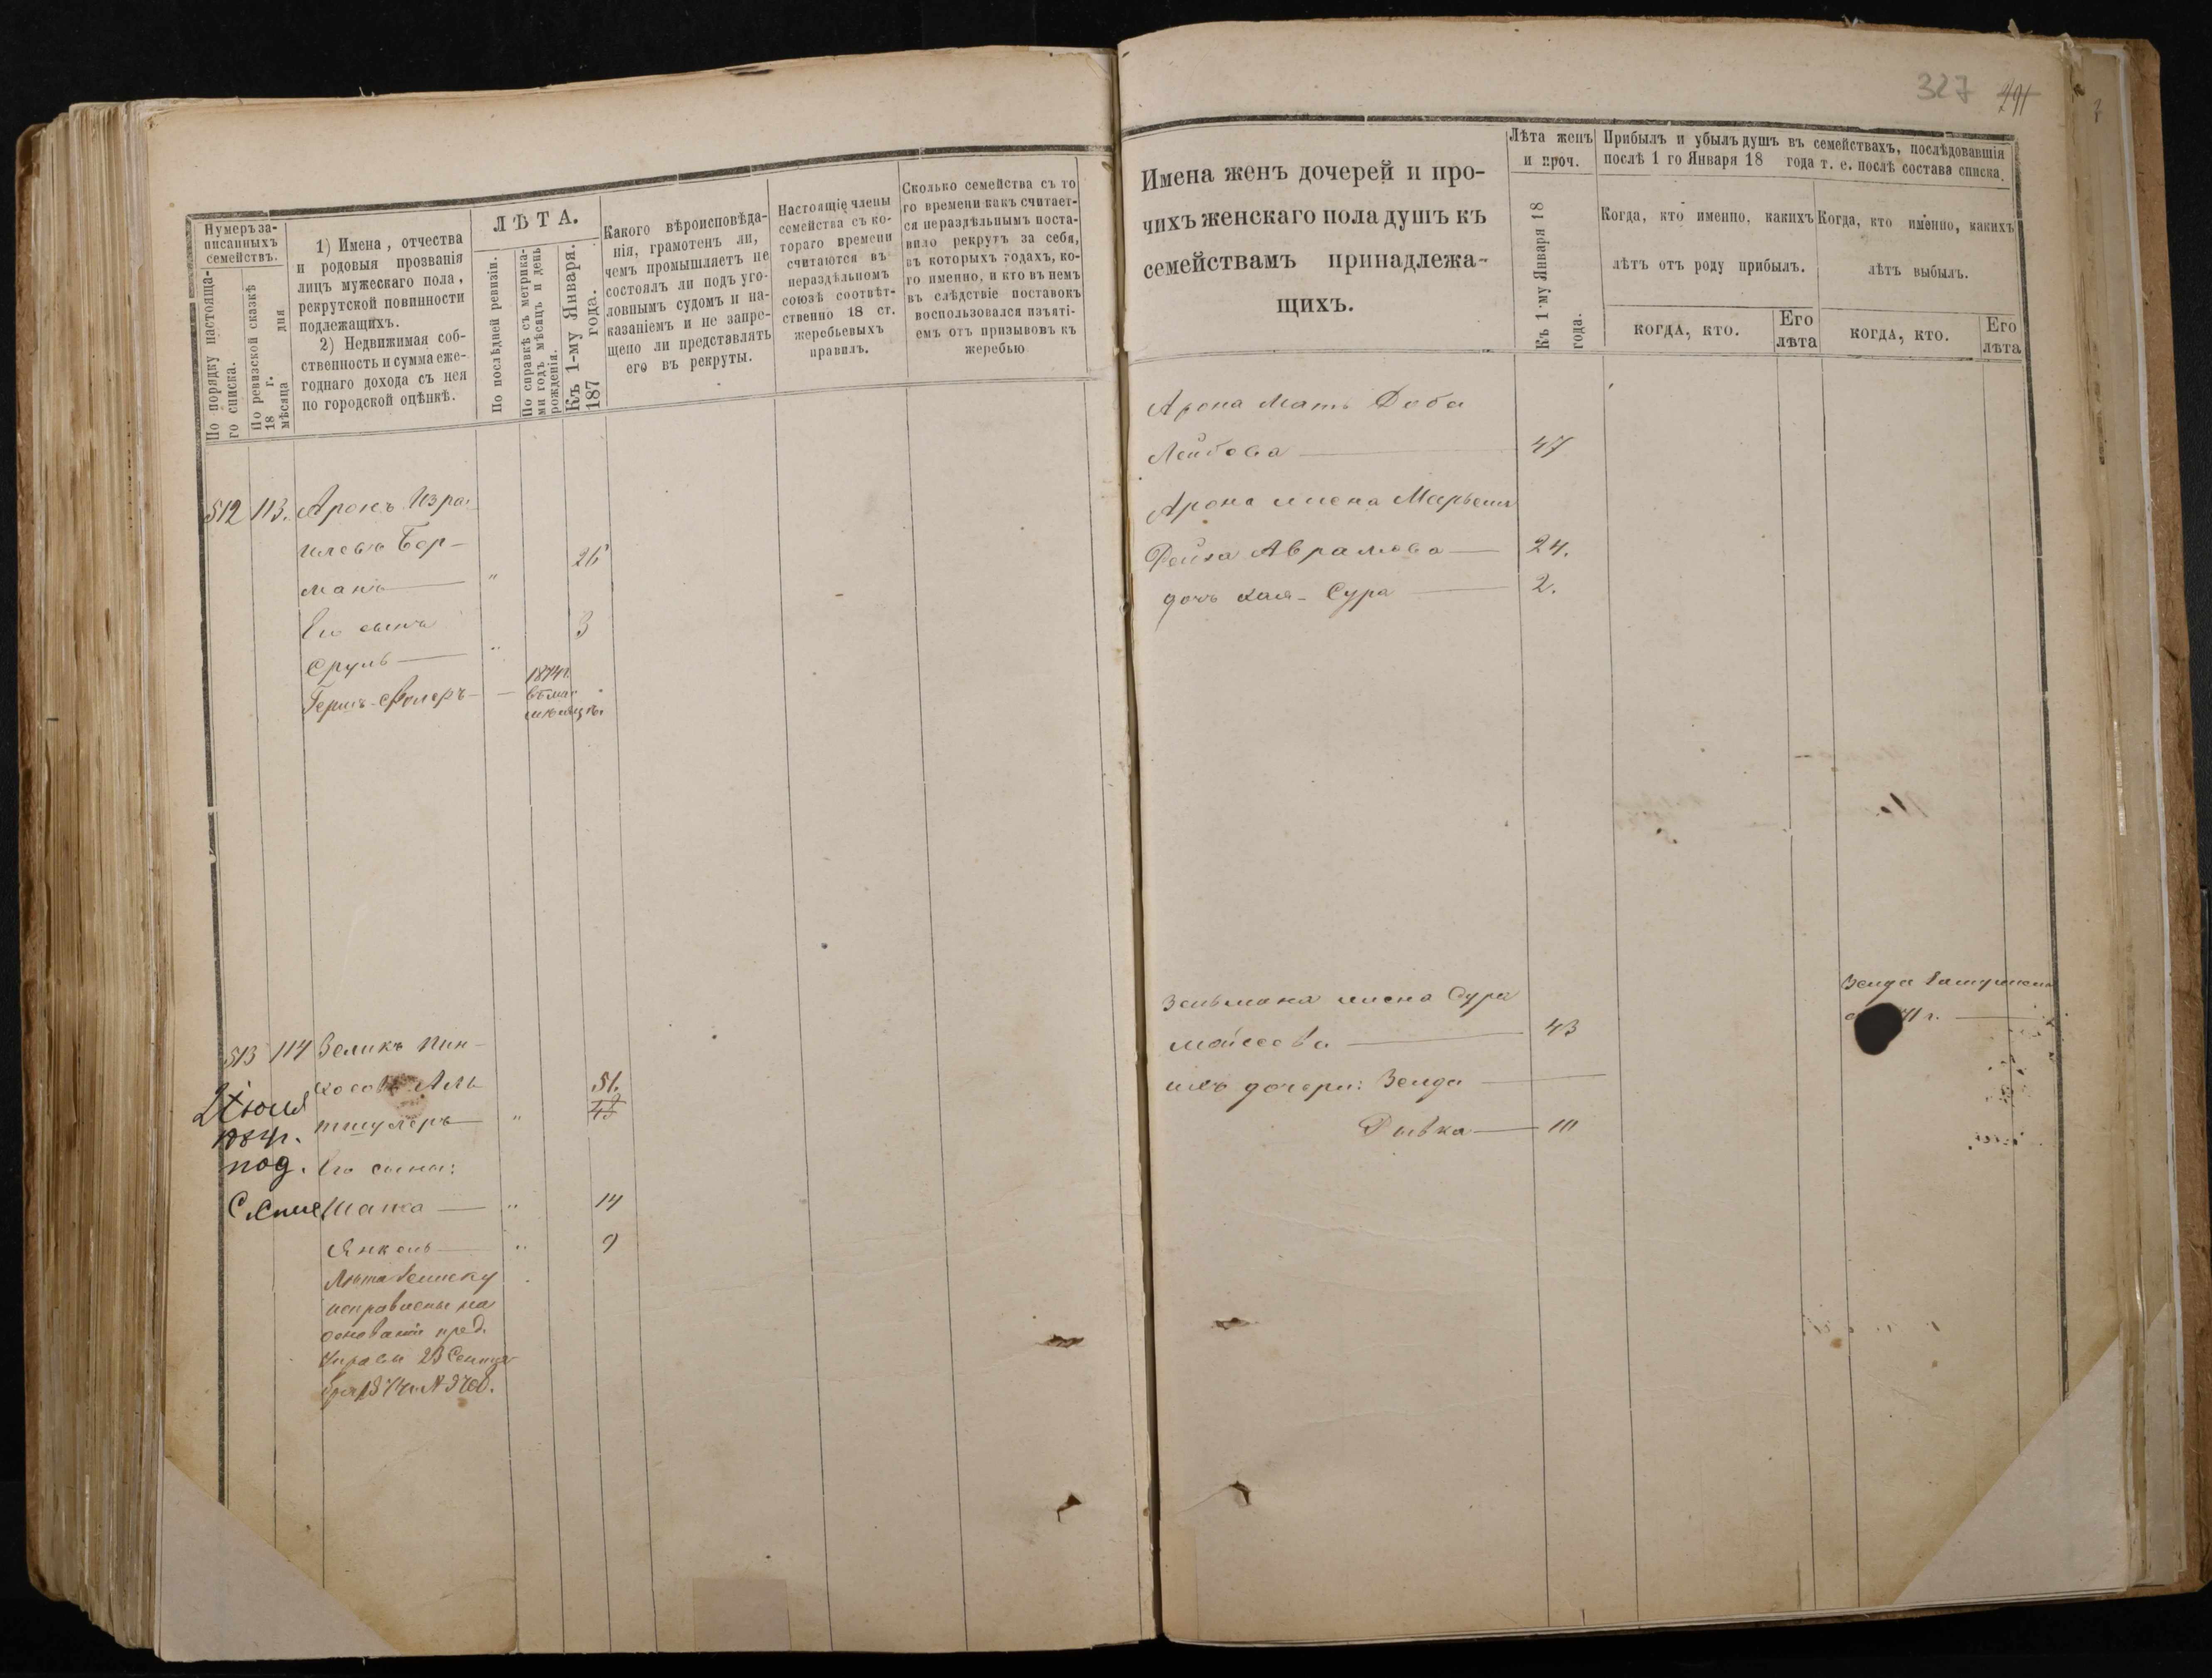 Нумеръ за-
писанныхъ
семействъ.
По порядку настояща-
го списка.
По ревизской сказкѣ
18 г. дня
мѣсяца
1) Имена, отчества
и родовыя прозванія
лицъ мужескаго пола,
рекрутской повинности
подлежащихъ.
2) Недвижимая соб-
ственность и сумма еже-
годнаго дохода съ нея
по городской оцѣнкѣ.
ЛѢТА.
По послѣдней ревизіи.
По справкѣ съ метрика-
ми годъ мѣсяцъ и день
рожденія.
Къ 1-му Января.
187 года.
Какого вѣроисповѣда-
нія, грамотенъ ли,
чемъ промышляетъ не
состоялъ ли подъ уго-
ловнымъ судомъ и на-
казаніемъ и не запре-
щено ли представлять
его въ рекруты.
Настоящіе члены
семейства съ ко-
тораго времени
считаются въ
нераздѣльномъ
союзѣ соотвѣт-
ственно 18 ст.
жеребьевыхъ
правилъ.
Сколько семейства съ то
го времени какъ считает-
ся нераздѣльнымъ поста-
вило рекрутъ за себя,
въ которыхъ годахъ, ко-
го именно, и кто въ немъ
въ слѣдствіе поставокъ
воспользовался изъяті-
емъ отъ призывовъ къ
жеребью
512 113. Аронъ Изра-
илевъ Бер-
манъ — " 26
Его сынъ
Сруль — " 3
Гершъ- — 1874 г.
513 114 Зеликъ Пин-
хосовъ Аль-
тшулеръ — " 51.
2 Іюля
под.
Его сыны:
Шапса — " 14
Янкель — " 9
Лѣта Зелику
исправлены на
основаніи пред.
Управы 23 Сентя-
бря 1874 г. №
327 491
Имена женъ дочерей и про-
чихъ женскаго пола душъ къ
семействамъ принадлежа-
щихъ.
Лѣта женъ
и проч.
Къ 1-му Января 18
года.
Прибылъ и убылъ душъ въ семействахъ, послѣдовавшія
послѣ 1 го Января 18 года т. е. послѣ состава списка.
Когда, кто именно, какихъ
лѣтъ отъ роду прибылъ.
КОГДА, КТО.
Его
лѣта
Когда, кто именно, какихъ
лѣтъ выбылъ.
КОГДА, КТО.
Его
лѣта
Арона мать Доба
Лейбова — 47
Арона жена Марьемъ
Фейга Аврамова — 24.
дочь Хая-Сура — 2.
Зельмана жена Сура
Моисеева — 43
ихъ дочери: Зелда —
Рывка — 10
Зелда замужемъ
71 г. —